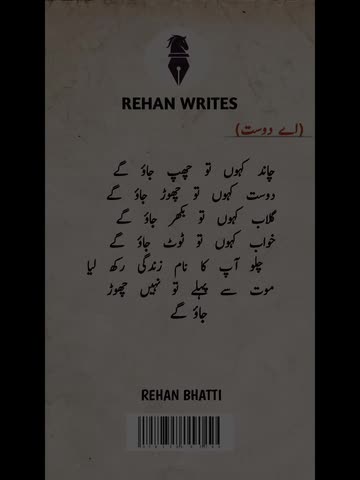 REHAN WRITES
(اے دوست)
چاند کہوں تو چھپ جاؤ گے
دوست کہوں تو چھوڑ جاؤ گے
گلاب کہوں تو بکھر جاؤ گے
خواب کہوں تو ٹوٹ جاؤ گے
چلو آپ کا نام زندگی رکھ لیا
موت سے پہلے تو نہیں چھوڑ
جاؤ گے
REHAN BHATTI